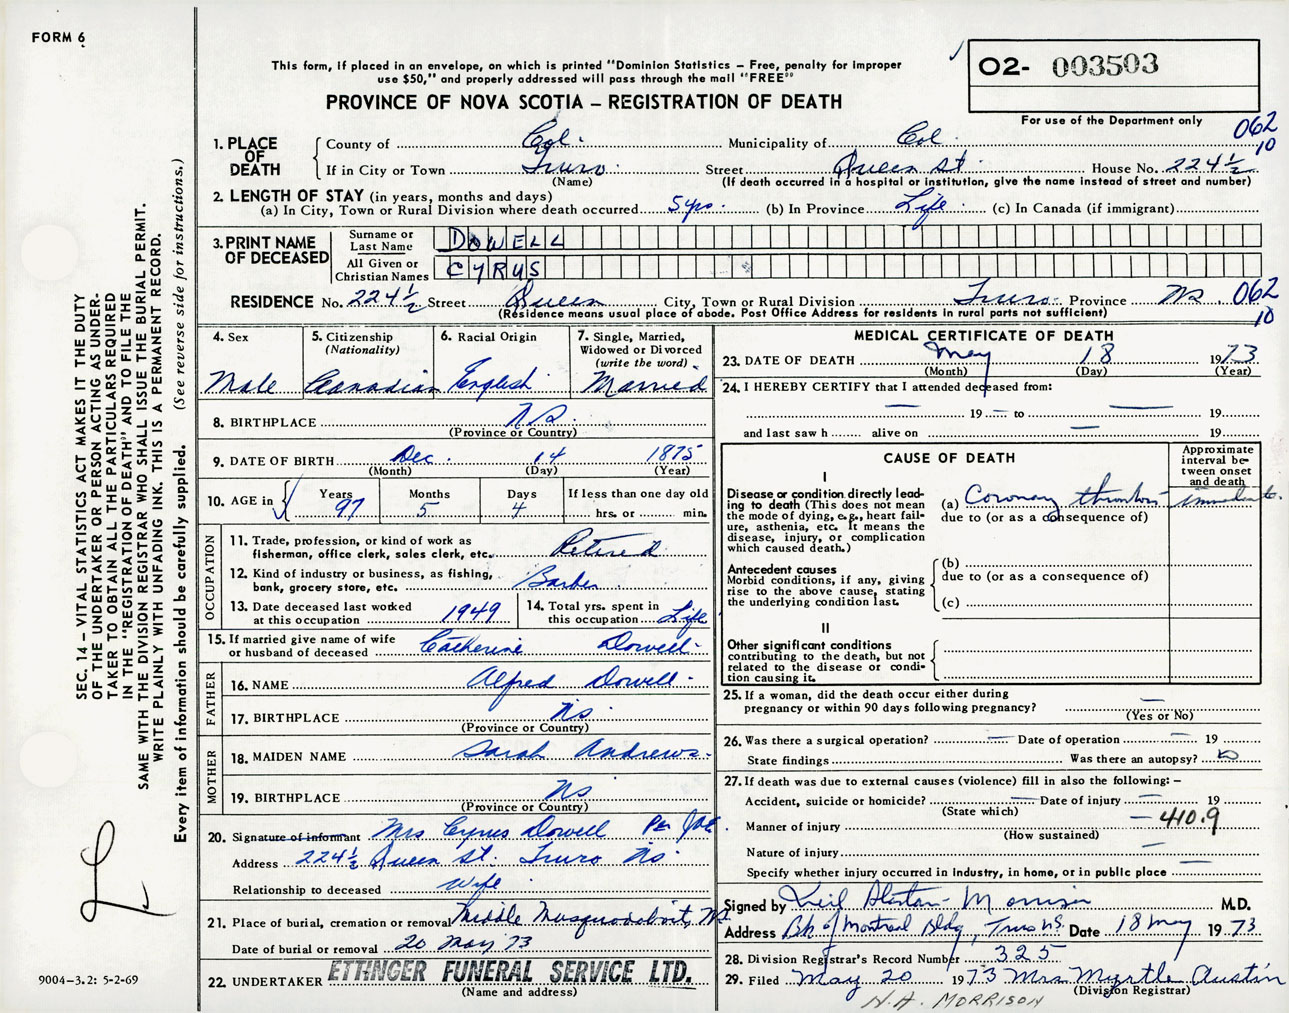 FORM 6
This form, if placed in an envelope, on which is printed "Dominion Statistics – Free, penalty for improper
use $50," and properly addressed will pass through the mail "FREE"
PROVINCE OF NOVA SCOTIA – REGISTRATION OF DEATH
02- 003503
For use of the Department only
062
10
1. PLACE OF DEATH
County of Col. Municipality of Col
If in City or Town Truro Street Queen St. House No. 224½
(Name) (If death occurred in a hospital or institution, give the name instead of street and number)
2. LENGTH OF STAY (in years, months and days)
(a) In City, Town or Rural Division where death occurred 5 yrs. (b) In Province Life (c) In Canada (if immigrant)
3. PRINT NAME OF DECEASED
Surname or Last Name DOWELL
All Given or Christian Names CYRUS
RESIDENCE No. 224½ Street Queen City, Town or Rural Division Truro Province NS 062
10
(Residence means usual place of abode. Post Office Address for residents in rural parts not sufficient)
4. Sex Male
5. Citizenship (Nationality) Canadian
6. Racial Origin English
7. Single, Married, Widowed or Divorced (write the word) Married
8. BIRTHPLACE N.S.
(Province or Country)
9. DATE OF BIRTH Dec. 14 1875
(Month) (Day) (Year)
10. AGE in Years 97 Months 5 Days 4 If less than one day old hrs. or min.
OCCUPATION
11. Trade, profession, or kind of work as
fisherman, office clerk, sales clerk, etc. Retired
12. Kind of industry or business, as fishing,
bank, grocery store, etc. Barber
13. Date deceased last worked
at this occupation 1949
14. Total yrs. spent in
this occupation Life
15. If married give name of wife
or husband of deceased Catherine Dowell
FATHER
16. NAME Alfred Dowell
17. BIRTHPLACE NS
(Province or Country)
MOTHER
18. MAIDEN NAME Sarah Andrews
19. BIRTHPLACE NS
(Province or Country)
20. Signature of informant Mrs Cyrus Dowell Per
Address 224½ Queen St. Truro NS
Relationship to deceased Wife
21. Place of burial, cremation or removal Middle Musquodoboit, NS
Date of burial or removal 20 May 73
22. UNDERTAKER ETTINGER FUNERAL SERVICE LTD.
(Name and address)
MEDICAL CERTIFICATE OF DEATH
23. DATE OF DEATH May 18 1973
(Month) (Day) (Year)
24. I HEREBY CERTIFY that I attended deceased from:
— 19 — to — 19
and last saw h alive on — 19
CAUSE OF DEATH
Approximate interval between onset and death
I
Disease or condition directly lead-
ing to death (This does not mean
the mode of dying, e.g., heart fail-
ure, asthenia, etc. It means the
disease, injury, or complication
which caused death.)
(a) Coronary thrombosis immediate.
due to (or as a consequence of)
Antecedent causes
Morbid conditions, if any, giving
rise to the above cause, stating
the underlying condition last.
(b)
due to (or as a consequence of)
(c)
II
Other significant conditions
contributing to the death, but not
related to the disease or condi-
tion causing it.
25. If a woman, did the death occur either during
pregnancy or within 90 days following pregnancy? —
(Yes or No)
26. Was there a surgical operation? — Date of operation — 19
State findings Was there an autopsy?
27. If death was due to external causes (violence) fill in also the following: –
Accident, suicide or homicide? — Date of injury — 19
(State which)
Manner of injury — 410.9
(How sustained)
Nature of injury —
Specify whether injury occurred in industry, in home, or in public place —
Signed by Neil Morrison M.D.
Address Bk of Montreal Bldg, Truro NS. Date 18 May 1973
28. Division Registrar's Record Number 325
29. Filed May 20 1973 Mrs Myrtle Austin
(Division Registrar)
N.A. MORRISON
SEC. 14 – VITAL STATISTICS ACT MAKES IT THE DUTY
OF THE UNDERTAKER OR PERSON ACTING AS UNDER-
TAKER TO OBTAIN ALL THE PARTICULARS REQUIRED
IN THE "REGISTRATION OF DEATH" AND TO FILE THE
SAME WITH THE DIVISION REGISTRAR WHO SHALL ISSUE THE BURIAL PERMIT.
WRITE PLAINLY WITH UNFADING INK. THIS IS A PERMANENT RECORD.
Every item of information should be carefully supplied. (See reverse side for instructions.)
9004–3.2: 5-2-69